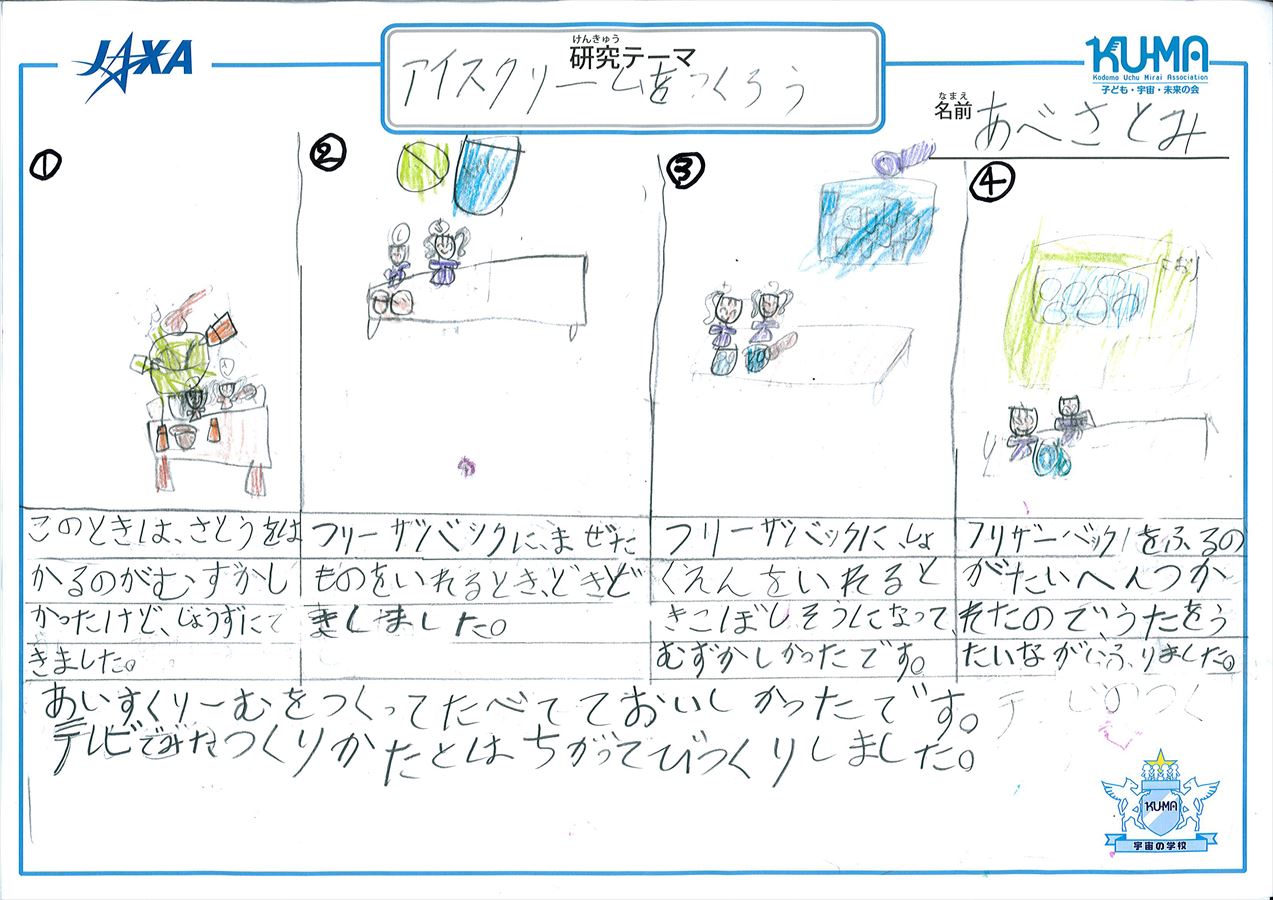 JAXA
けんきゅう
研究テーマ
アイスクリームをつくろう
KU-MA
Kodomo Uchu Mirai Association
子ども・宇宙・未来の会
なまえ
名前
あべさとみ
①
このときは、さとうをは
かるのがむずかし
かったけど、じょうずにで
きました。
②
フリーザツバックに、まぜた
ものをいれるとき、どきど
きしました。
③
フリーザバックに、しょ
くえんをいれると
きこぼしそうになって、
むずかしかったです。
④
こおり
フリザーバックをふるの
がたいへんつか
れたのでうたをう
たいながらふりました。
あいすくりーむをつくってたべてておいしかったです。
テレビでみたつくりかたとはちがってびっくりしました。
KU-MA
宇宙の学校